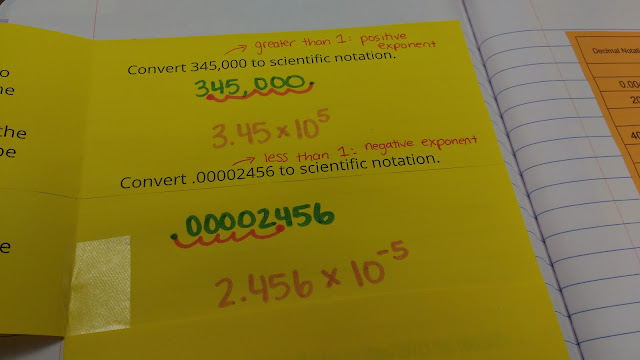 → greater than 1: positive
exponent
Convert 345,000 to scientific notation.
345,000.
3.45 × 10⁵
→ less than 1: negative exponent
Convert .00002456 to scientific notation.
.00002456
2.456 × 10⁻⁵
the
e
Decimal
0.00